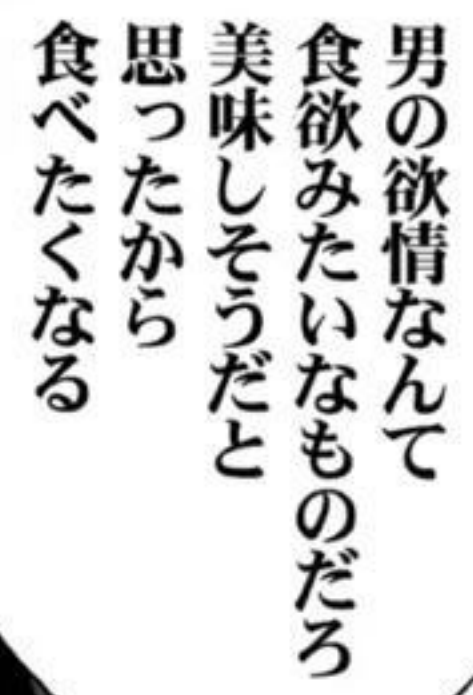 男の欲情なんて
食欲みたいなものだろ
美味しそうだと
思ったから
食べたくなる